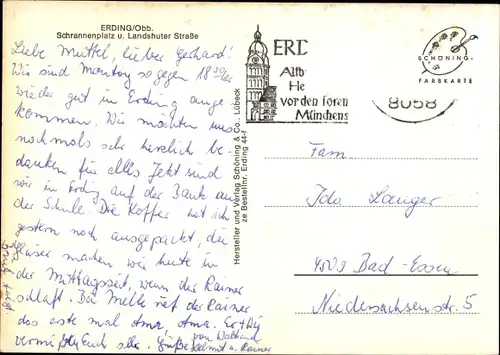 ERDING/Obb.
Schrannenplatz u. Landshuter Straße
Liebe Muttel, lieber Gerhard!
Wir sind Montag so gegen 18 30 Uhr
wieder gut in Erding ange
kommen. Wir möchten uns
nochmals sehr herzlich be-
danken für alles. Jetzt sind
wir in Erding auf der Bank an
der Schule. Die Koffer hat ich
gestern noch ausgepackt, die
Gläser machen wir heute in
der Mittagszeit, wenn der Rainer
schläft. Bei Melle rief der Rainer
das erste mal Oma, Oma. Er
vermißt Euch alle. Grüße von
Helmut u. Rainer
Hersteller und Verlag Schöning & Co., Lübeck
ze Bestellnr. Erding 44-f
ERD
Altb
He
vor den Toren
Münchens
SCHÖNING-
FARBKARTE
8058
Fam.
Ida Langer
4509 Bad-Essen
Niedersachsenstr. 5